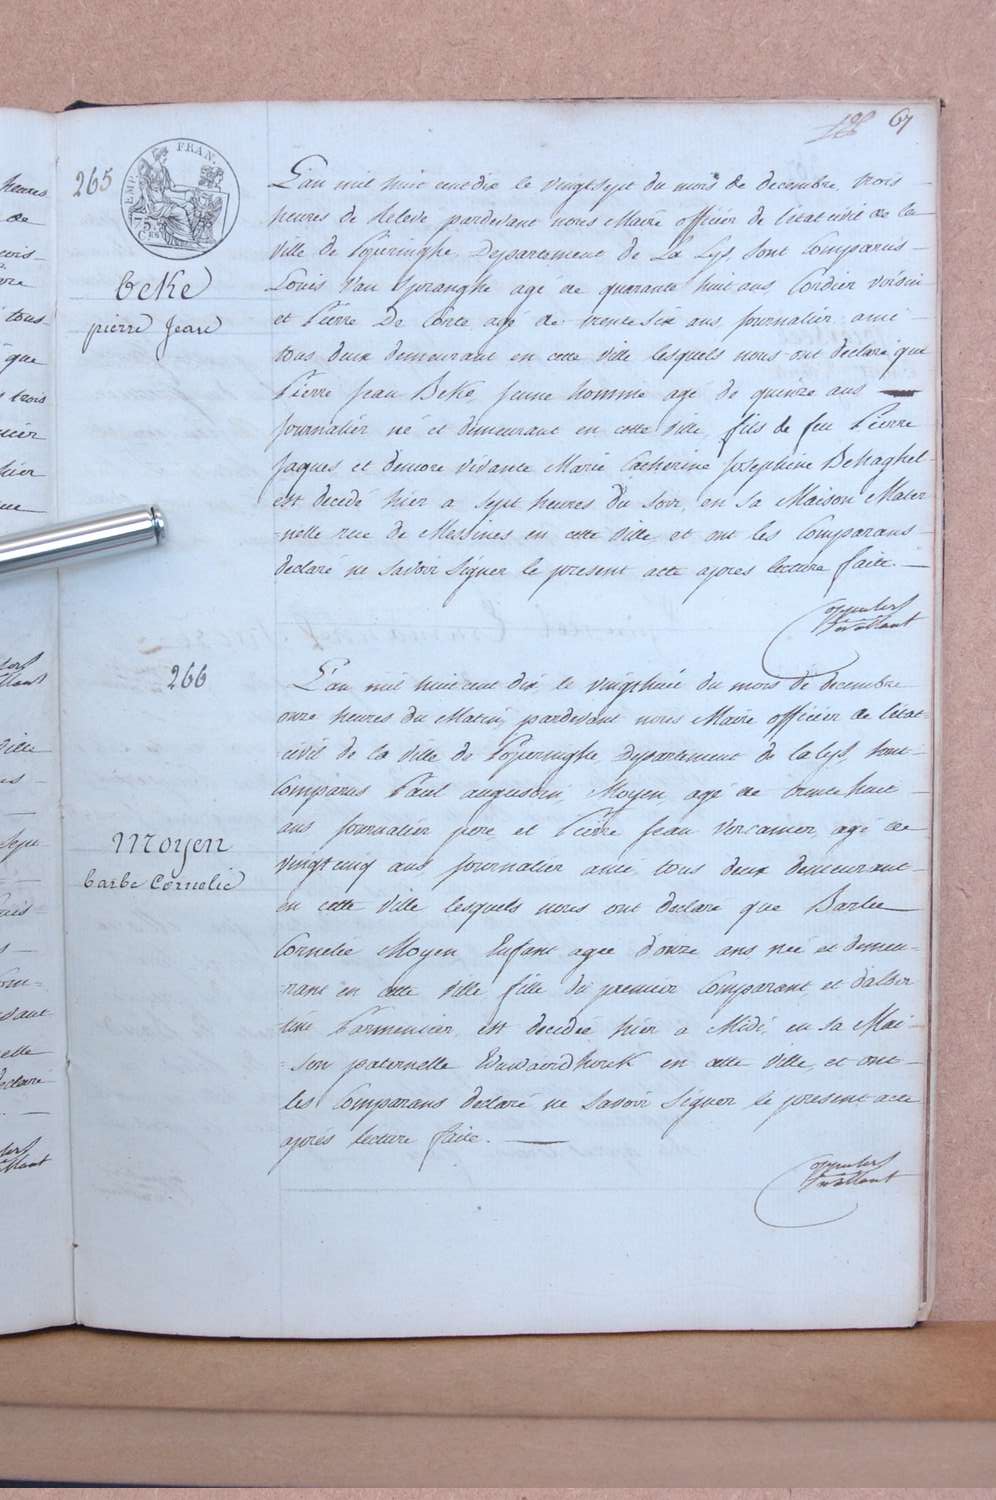 67
265
EMP. FRAN.
beke
pierre Jean
L'an mil huit cent dix le vingt sept du mois de decembre, trois
heures de Relevé pardevant nous Maire officier de l'état civil de la
ville de Poperinghe, Departement de La Lys, sont Comparus
Louis Van Spranghe agé de quarante huit ans Cordier voisin
et Pierre De Conte agé de trente six ans, journalier ami
tous deux demeurant en cette ville lesquels nous ont declaré que
Pierre Jean Beke, Jeune homme agé de quinze ans
journalier né et demeurant en cette ville, fils de feu Pierre
Jaques et demore vivante Marie Catherine Josephine Behaghel
est decedé hier a sept heures du soir, en sa Maison Mater
-nelle rue de Messines en cette ville, et ont les Comparans
declaré ne savoir signer le present acte apres lecture faite.
266
Moyen
barbe Cornelie
L'an mil huit cent dix, le vingt huit du mois de decembre
onze heures du Matin, pardevant nous Maire officier de l'état
-civil de la ville de Poperinghe, Departement de la lys, sont
Comparus Paul augustin, Moyen, agé de trente huit
ans journalier pere, et Pierre Jean Vercamer, agé de
vingt cinq ans journalier ami, tous deux demeurant
en cette ville lesquels nous ont declaré que Barbe
Cornelie Moyen Enfant agee d'onze ans née et demeu-
-rant en cette ville fille du premier Comparant et d'alber
tine Parmentier, est decedée hier à Midi, en sa Mai-
-son paternelle en cette ville, et ont
les Comparans declaré ne savoir signer le present acte
aprés lecture faite.